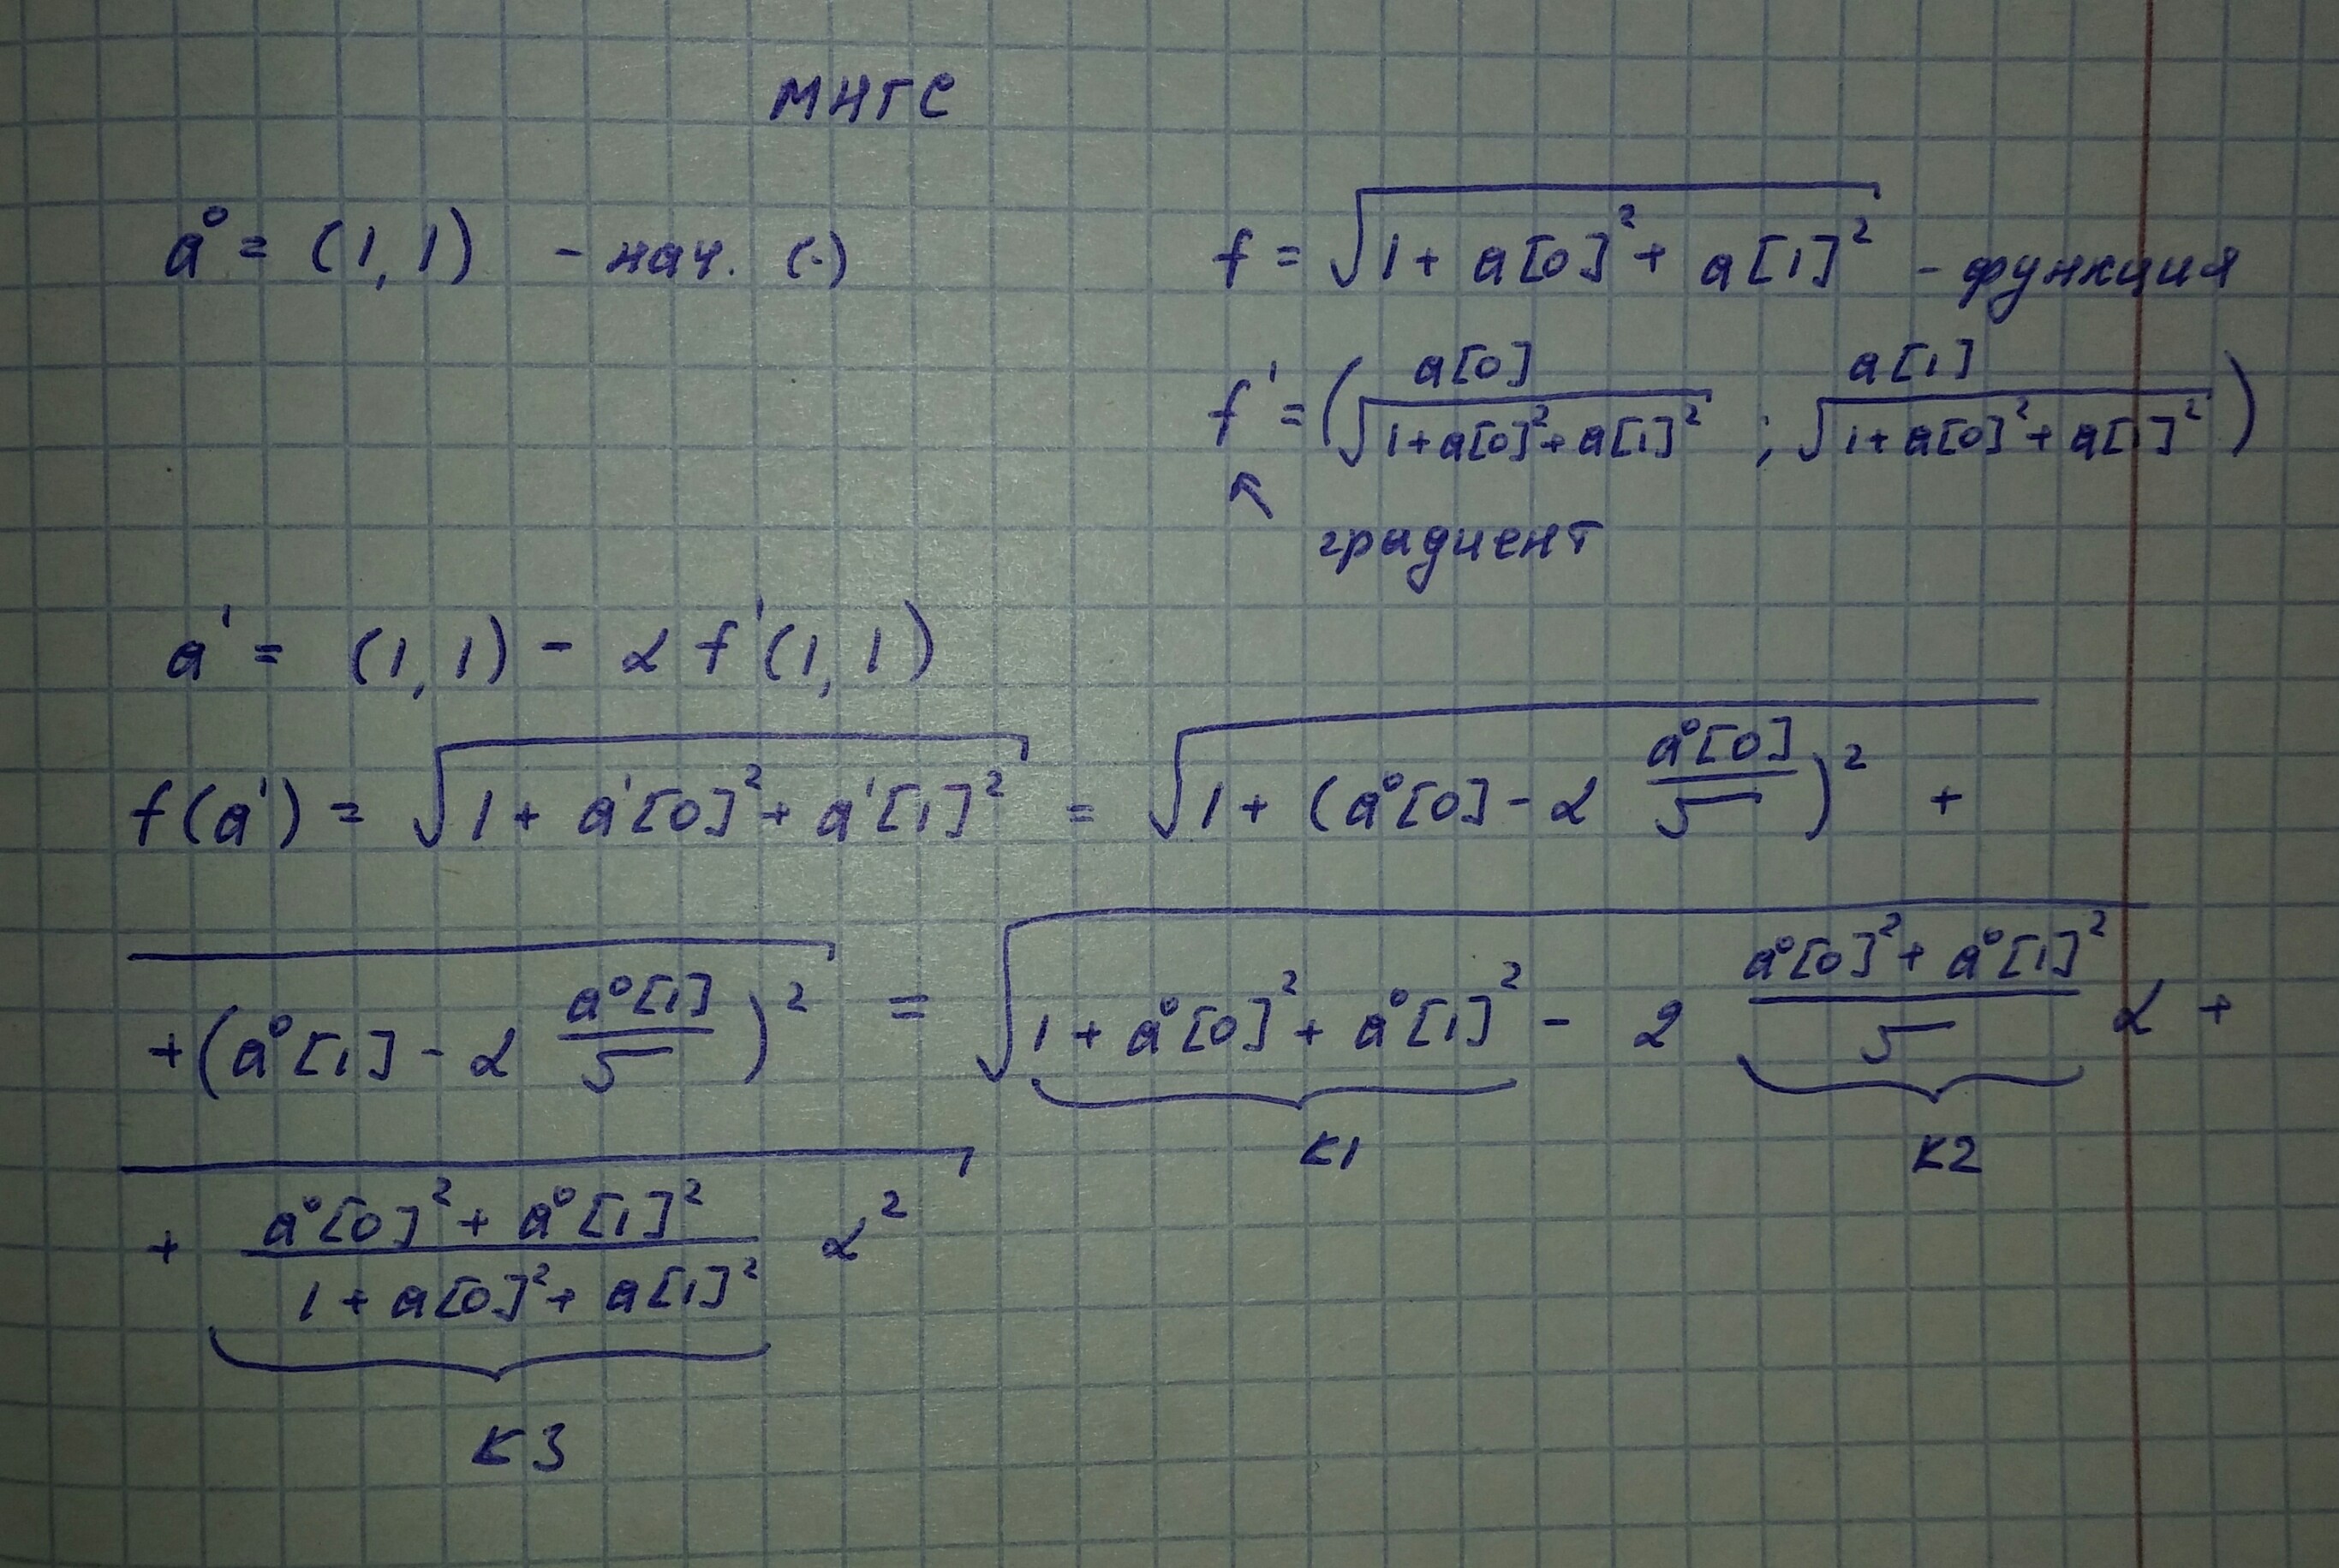 МНГС
a⁰ = (1, 1) - нач. (·)
f = √(1 + a[0]² + a[1]²) - функция
f' = (a[0] / √(1+a[0]²+a[1]²) ; a[1] / √(1+a[0]²+a[1]²))
↖
градиент
a¹ = (1, 1) - α f'(1, 1)
f(a¹) = √(1 + a¹[0]² + a¹[1]²) = √(1 + (a⁰[0] - α a⁰[0]/√‾)² +
+ (a⁰[1] - α a⁰[1]/√‾)²) = √(1 + a⁰[0]² + a⁰[1]² - 2 (a⁰[0]² + a⁰[1]²)/√‾ α +
K1 K2
+ (a⁰[0]² + a⁰[1]²)/(1 + a[0]² + a[1]²) α²)
K3